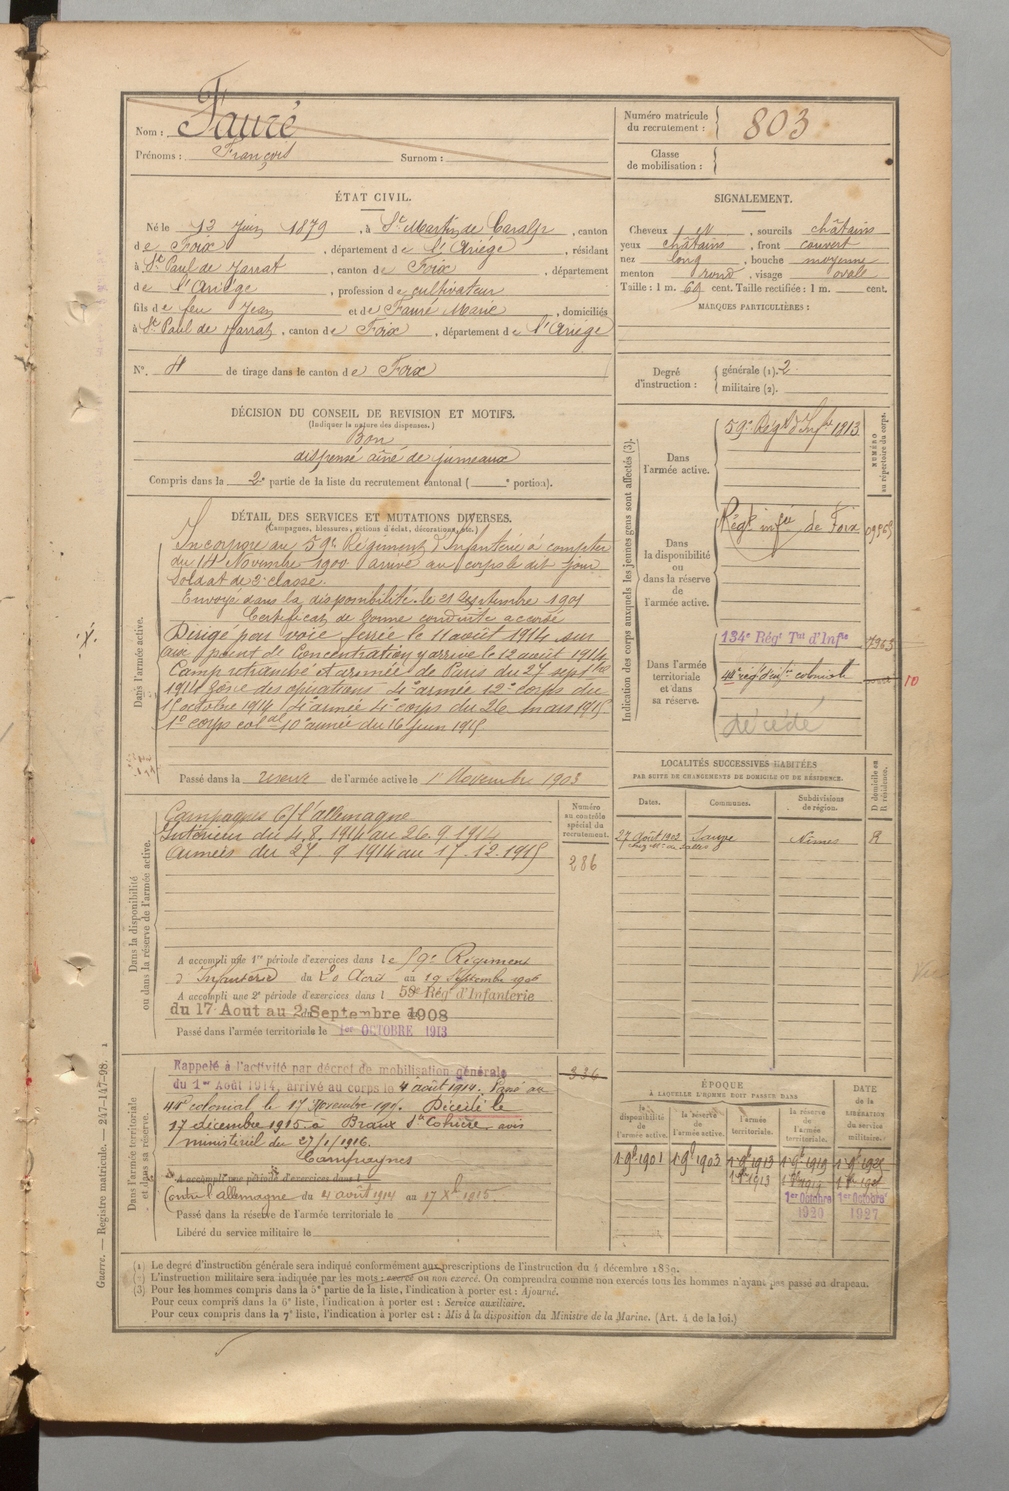 Nom : Fauré
Prénoms : François Surnom :
Numéro matricule du recrutement : 803
Classe de mobilisation :
ÉTAT CIVIL.
Né le 13 Juin 1879, à St Martin de Caralp, canton
de Foix, département de l'Ariège, résidant
à St Paul de Jarrat, canton de Foix, département
de l'Ariège, profession de cultivateur
fils de feu Jean et de Fauré Marie, domiciliés
à St Paul de Jarrat, canton de Foix, département de l'Ariège
N°. 4 de tirage dans le canton de Foix
SIGNALEMENT.
Cheveux, sourcils châtains
yeux châtains, front couvert
nez long, bouche moyenne
menton rond, visage ovale
Taille : 1 m. 69 cent. Taille rectifiée : 1 m. cent.
MARQUES PARTICULIÈRES :
Degré d'instruction : générale (1). 2
militaire (2).
DÉCISION DU CONSEIL DE REVISION ET MOTIFS.
(Indiquer la nature des dispenses.)
Bon
dispensé aîné de jumeaux
Compris dans la 2e partie de la liste du recrutement cantonal ( e portion).
DÉTAIL DES SERVICES ET MUTATIONS DIVERSES.
(Campagnes, blessures, actions d'éclat, décorations, etc.)
Dans l'armée active.
Incorporé au 59e Régiment d'Infanterie à compter
du 14 Novembre 1900 arrivé au corps le dit jour
Soldat de 2e classe.
Envoyé dans la disponibilité le 21 Septembre 1901
Certificat de bonne conduite accordé
Dirigé par voie ferrée le 11 août 1914 sur
point de Concentration y arrive le 12 août 1914
Camp retranché et armée de Paris du 27 septbre
1914 Zone des opérations 4e armée 12e corps du
15 octobre 1914 4e armée 4e corps du 26 mars 1915
1e corps colal 10e armée du 16 juin 1915
Passé dans la réserve de l'armée active le 1e Novembre 1903
Indication des corps auxquels les jeunes gens sont affectés (3).
NUMÉRO au répertoire du corps.
Dans l'armée active.
59e Régt d'Infie 1813
Dans la disponibilité ou dans la réserve de l'armée active.
Régt infie de Foix
Dans l'armée territoriale et dans sa réserve.
134e Régt Tal d'Infie
44e régt d'infie coloniale
10
décédé
LOCALITÉS SUCCESSIVES HABITÉES
PAR SUITE DE CHANGEMENTS DE DOMICILE OU DE RÉSIDENCE.
Dates. Communes. Subdivisions de région. D domicile ou R résidence.
27 Août 1902 Nîmes R
Dans la disponibilité ou dans la réserve de l'armée active.
Campagnes C/ l'allemagne
Intérieur du 4.8.1914 au 26.9.1914
Armées du 27.9.1914 au 17.12.1915
Numéro au contrôle spécial du recrutement.
286
A accompli une 1re période d'exercices dans le 59e Régiment
d'Infanterie du 20 Août au 19 Septembre 1906
A accompli une 2e période d'exercices dans l 59e Régt d'Infanterie
du 17 Aout au 2 Septembre 1908
Passé dans l'armée territoriale le 1er OCTOBRE 1913
Dans l'armée territoriale et dans sa réserve.
Rappelé à l'activité par décret de mobilisation générale
du 1er Août 1914, arrivé au corps le 4 août 1914. Passé au
44e colonial le 17 Novembre 191. Décédé le
17 décembre 1915 à Braux Ste Cohière avis
ministériel du 27/1/1916.
336
Campagnes
A accompli une période d'exercices dans l
Contre l'allemagne du 4 août 1914 au 17 Xbre 1915.
Passé dans la réserve de l'armée territoriale le
Libéré du service militaire le
ÉPOQUE
À LAQUELLE L'HOMME DOIT PASSER DANS
la disponibilité de l'armée active. la réserve de l'armée active. l'armée territoriale. la réserve de l'armée territoriale.
DATE de la LIBÉRATION du service militaire.
1 9bre 1901 1 9bre 1903 1 9bre 1913 1 9bre 1919
1er Octobre 1920 1er Octobre 1927
(1) Le degré d'instruction générale sera indiqué conformément aux prescriptions de l'instruction du 4 décembre 1889.
(2) L'instruction militaire sera indiquée par les mots : exercé ou non exercé. On comprendra comme non exercés tous les hommes n'ayant pas passé au drapeau.
(3) Pour les hommes compris dans la 5e partie de la liste, l'indication à porter est : Ajourné.
Pour ceux compris dans la 6e liste, l'indication à porter est : Service auxiliaire.
Pour ceux compris dans la 7e liste, l'indication à porter est : Mis à la disposition du Ministre de la Marine. (Art. 4 de la loi.)
Guerre. — Registre matricule. — 247-147-98.